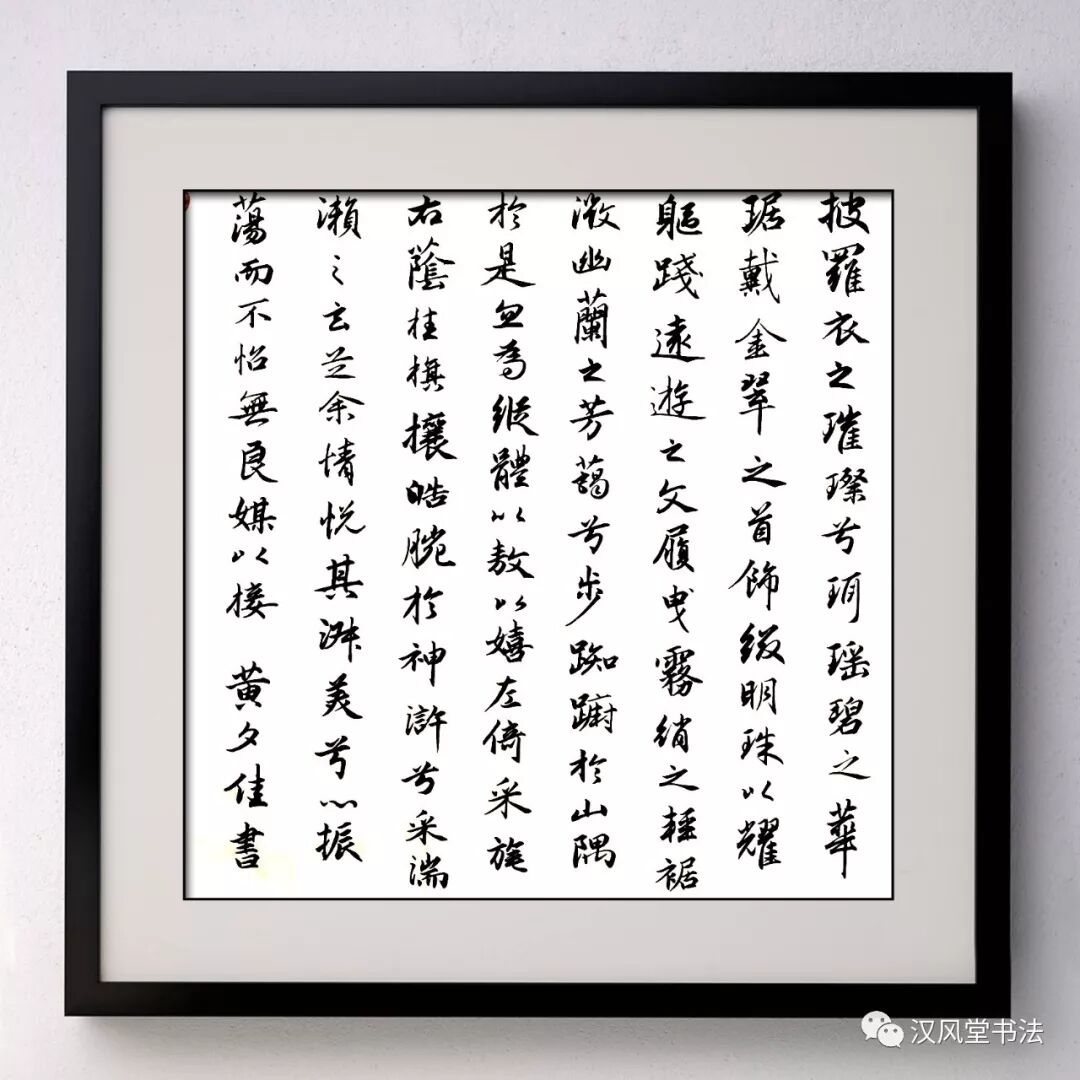 披羅衣之璀璨兮珥瑤碧之華
琚戴金翠之首飾綴明珠以耀
軀踐遠遊之文履曳霧綃之輕裾
微幽蘭之芳藹兮步踟躕於山隅
於是忽焉縱體以敖以嬉左倚采旄
右蔭桂旗攘皓腕於神滸兮采湍
瀨之玄芝余情悅其淑美兮心振
蕩而不怡無良媒以接 黃夕佳書
汉风堂书法